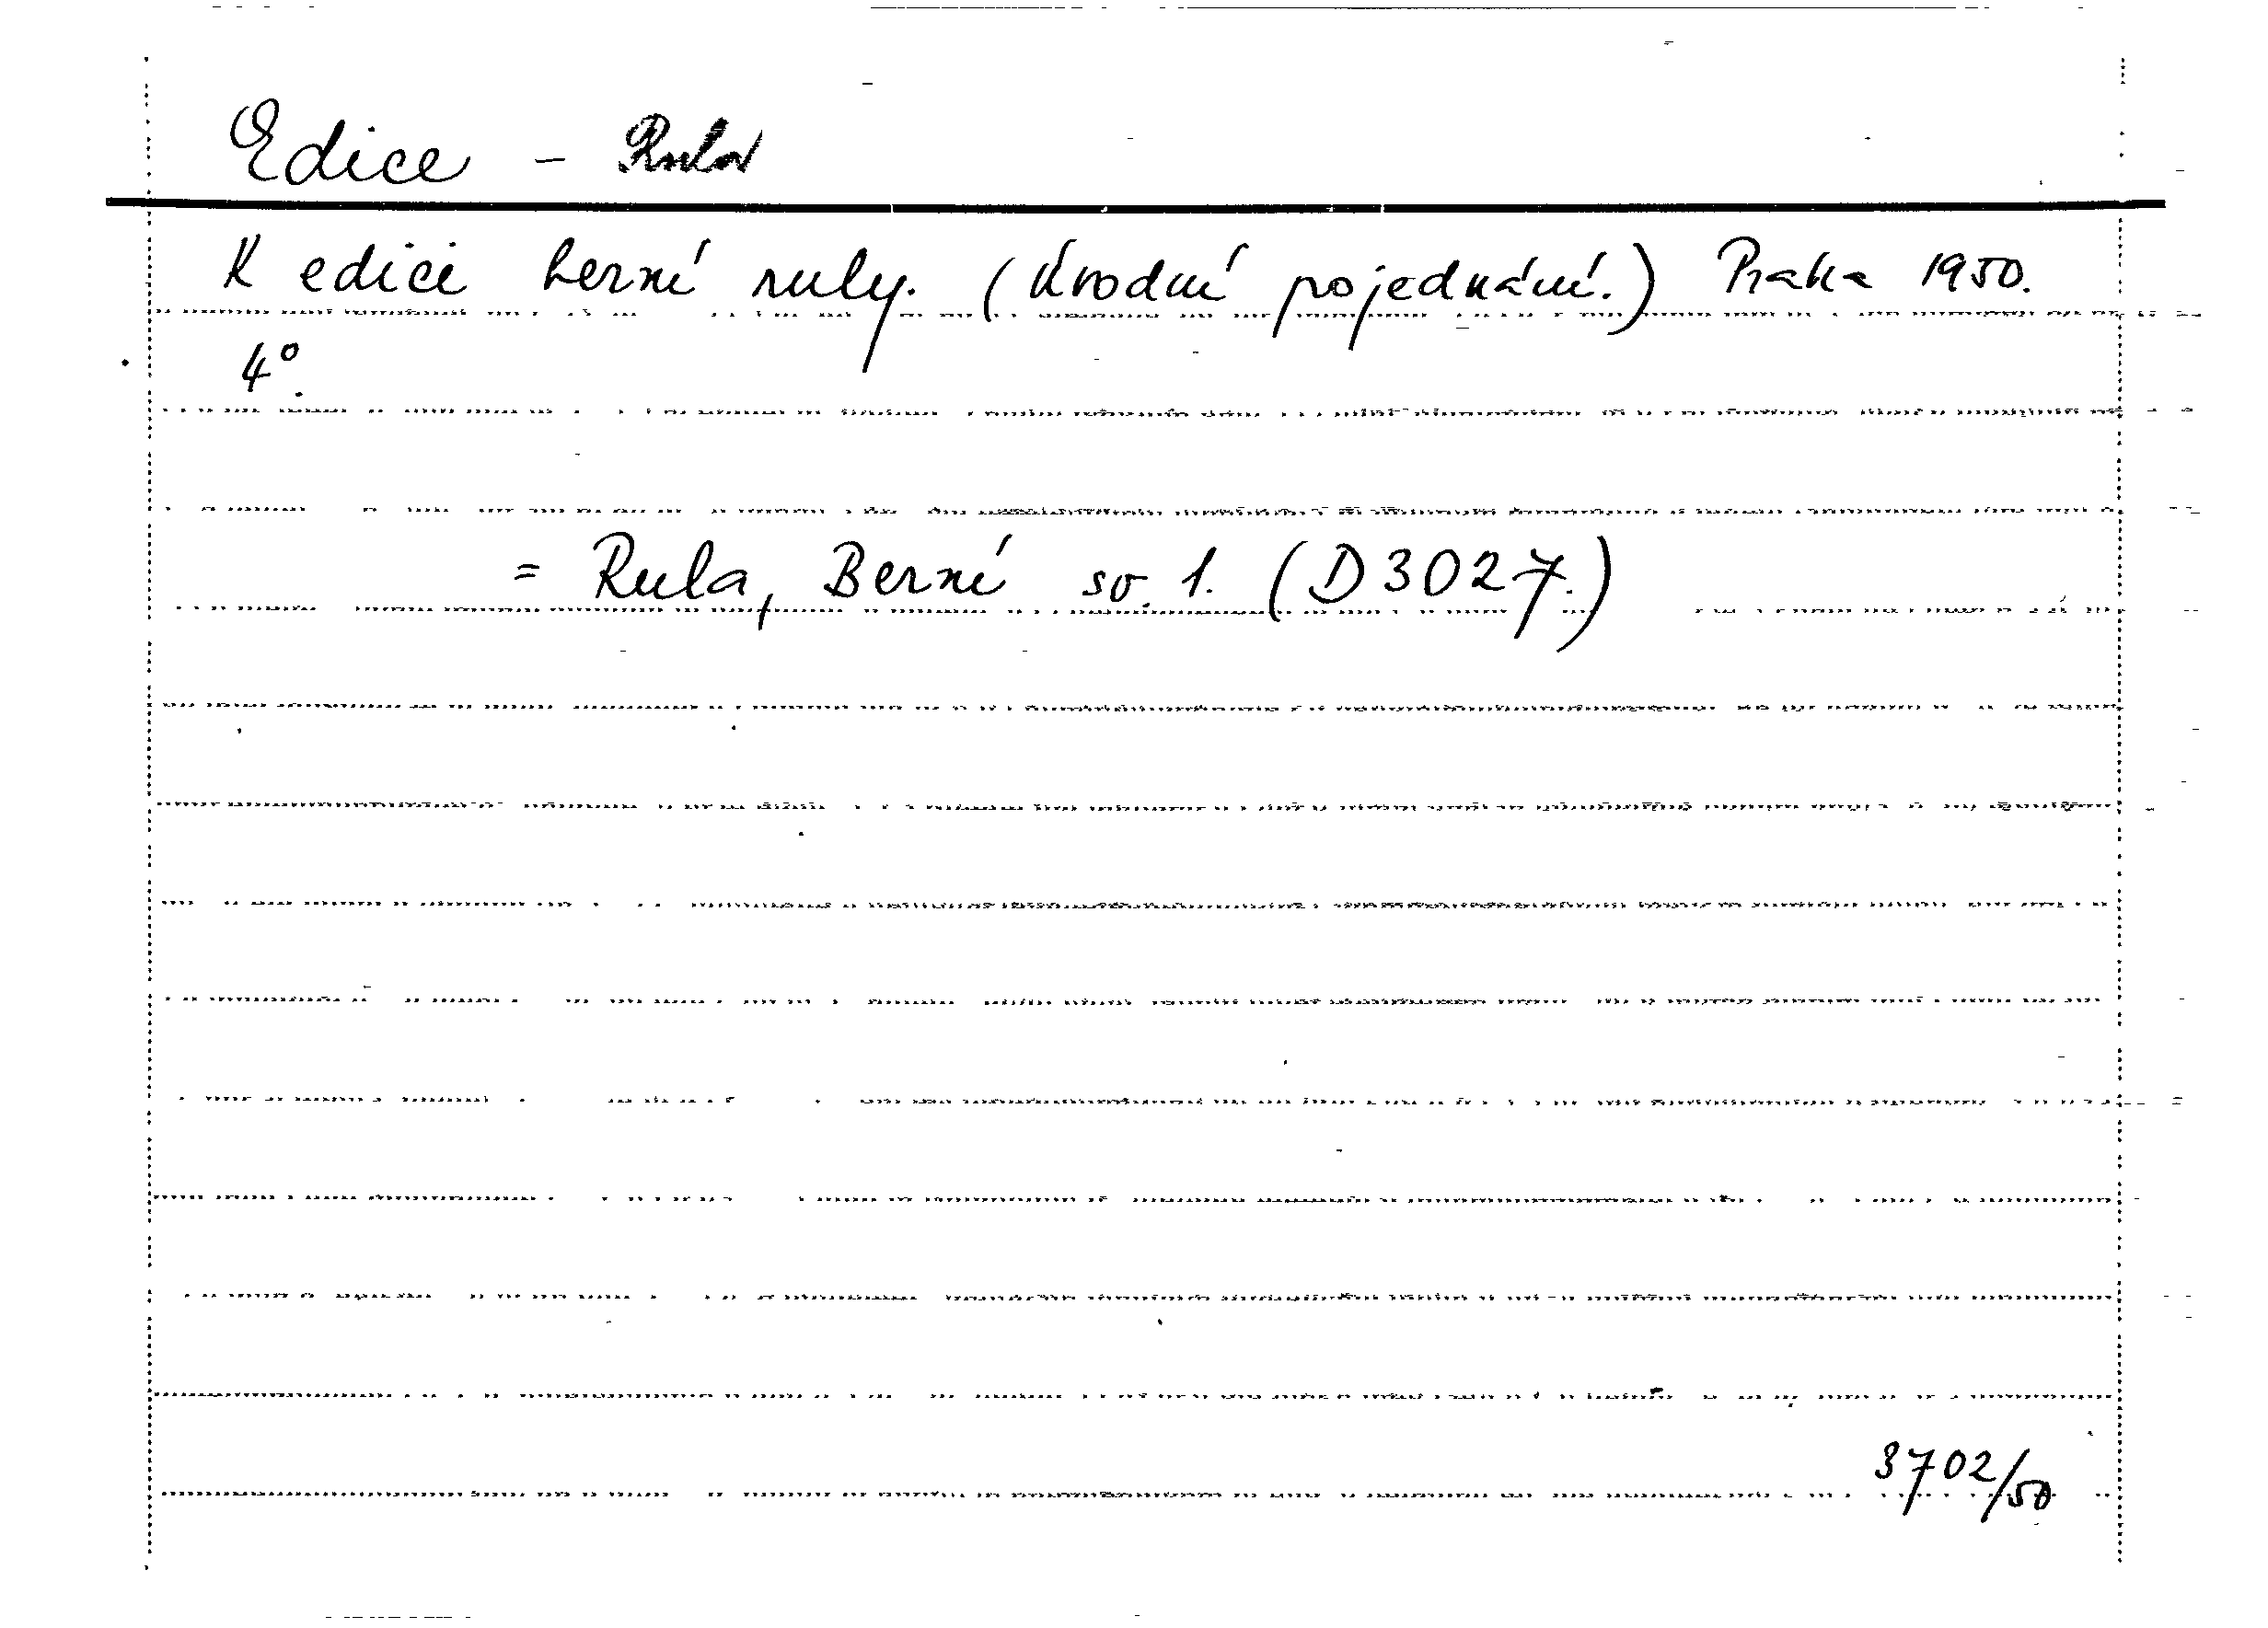 Edice - Rula
K edici berní ruly. (Úvodní pojednání.) Praha 1950.
4°.
= Rula, Berní sv. 1. (D 3027.)
3702/50